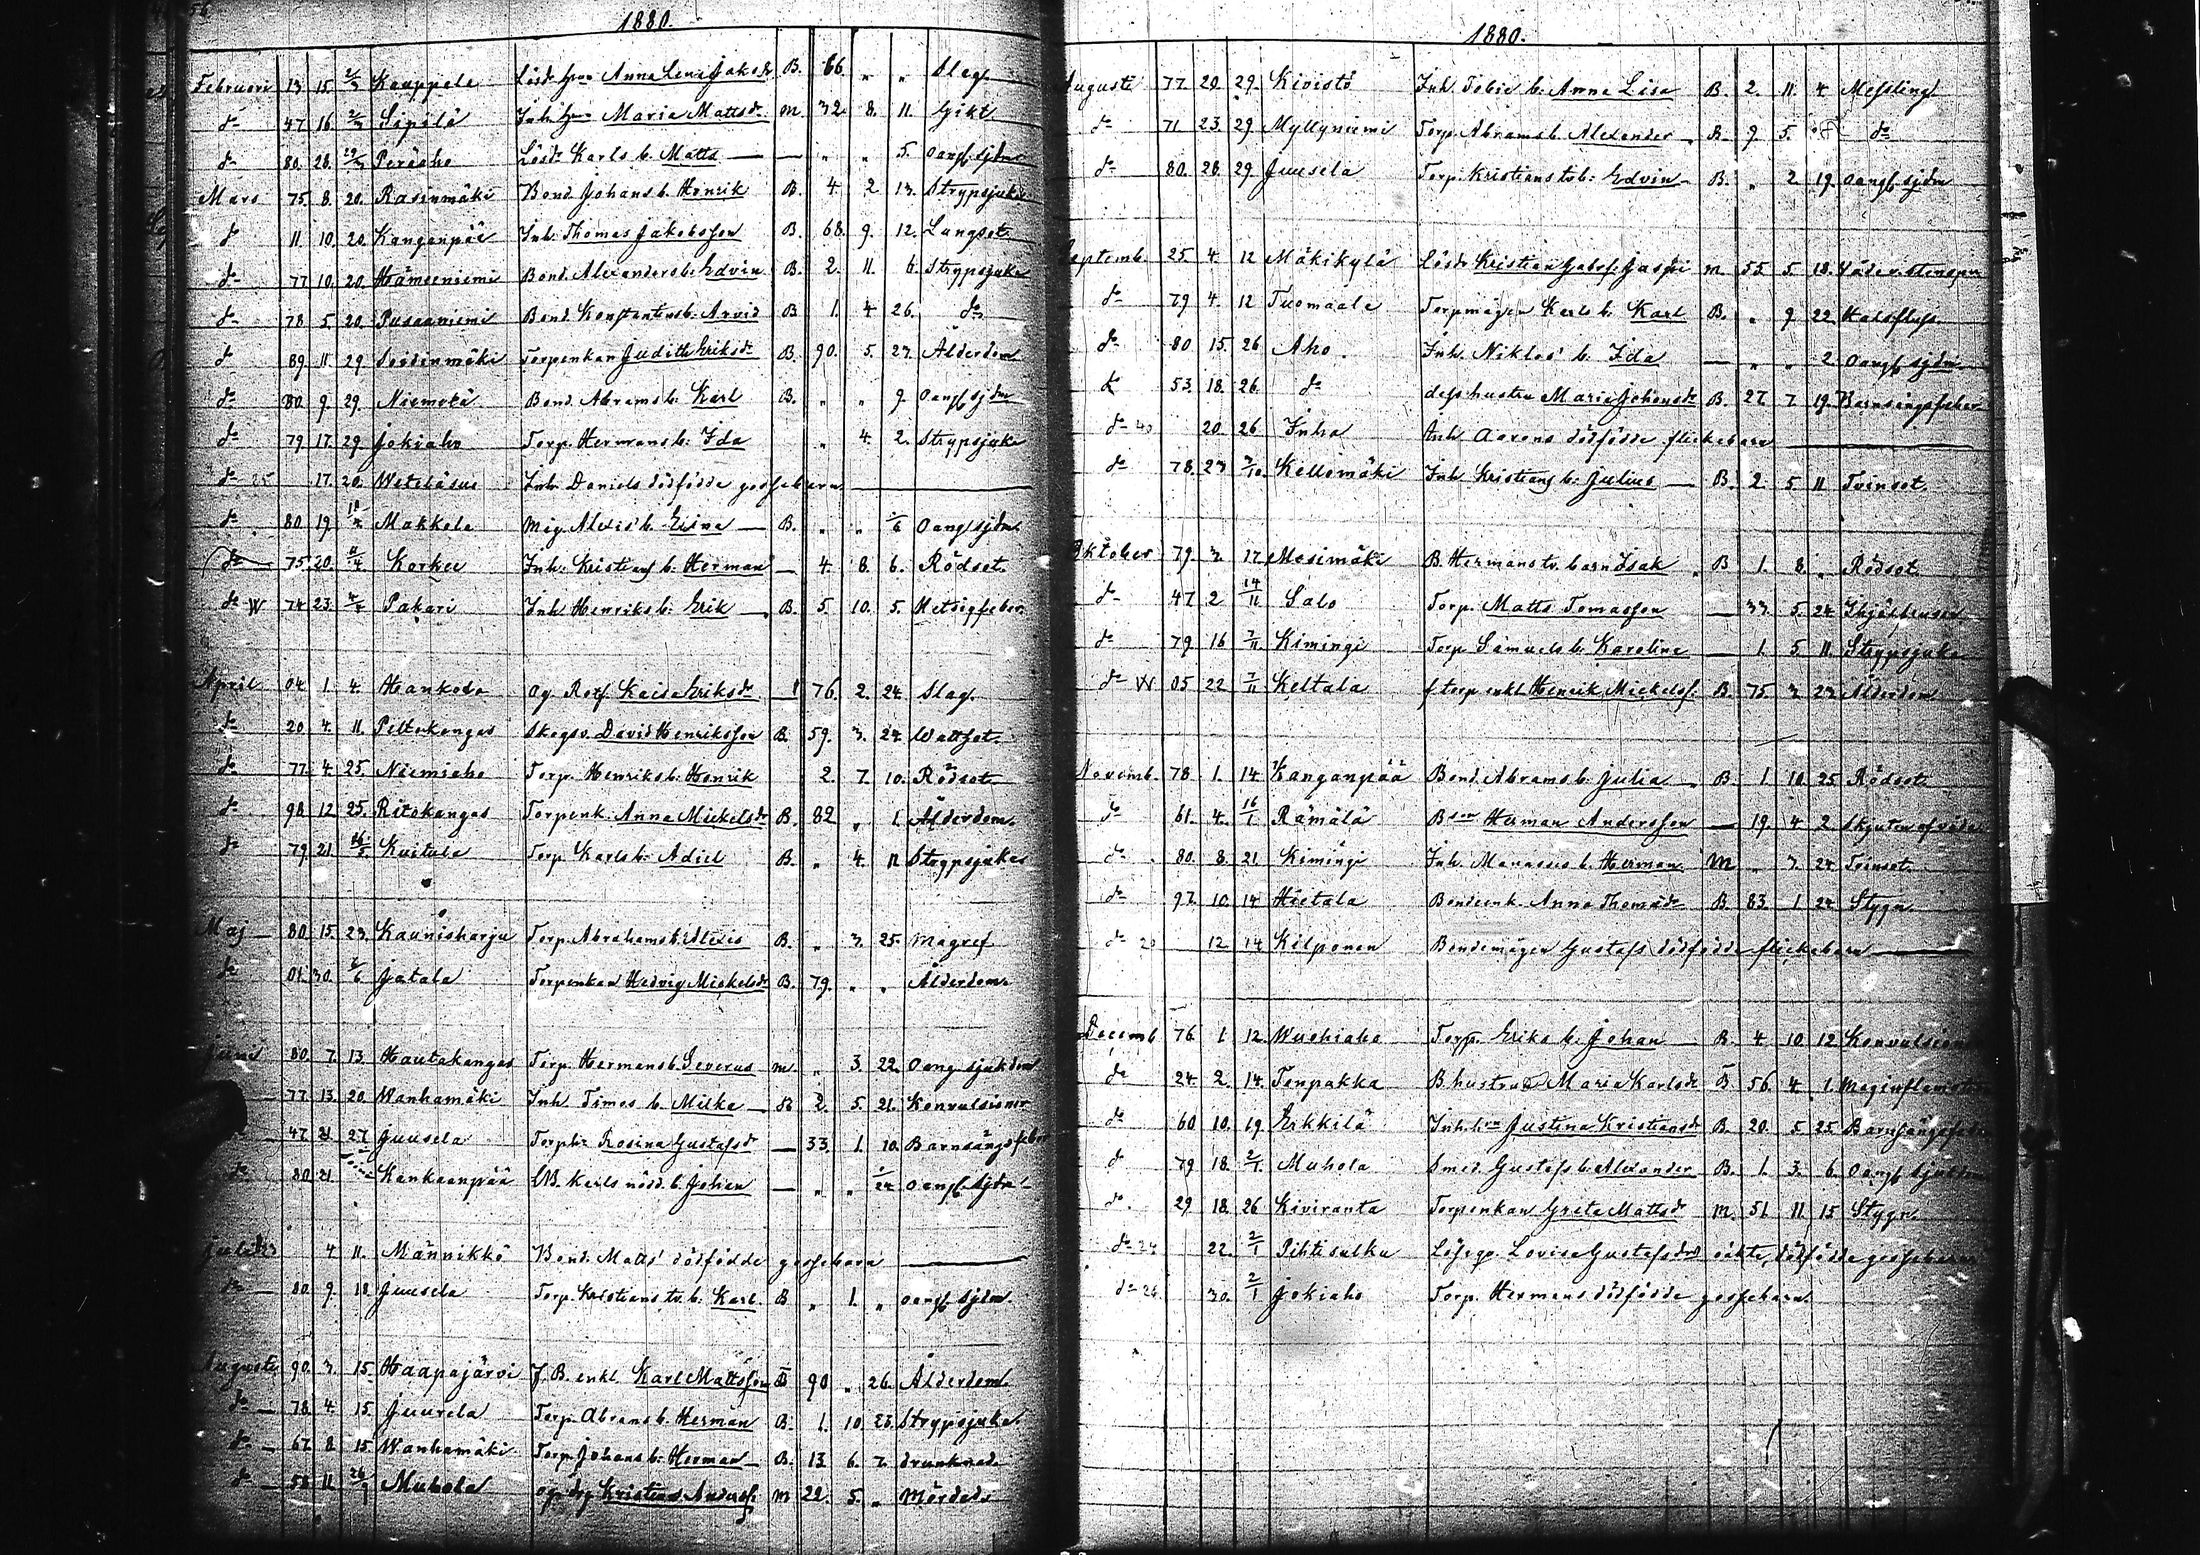 56
1880.
Februari 13 15 2/3 Kauppala Lösdr hru Anna Lena Jaksdr B. 66 „ „ Slag
do 47 16 2/3 Sipilä Inh. hru Maria Mattsdr m. 32. 8. 11. Gikt.
do 80. 28. 29/3 Peräaho Lösdr Karls b. Matts — — „ „ 5. oangf. sjdm
Mars 75. 8. 20. Rasinmäki Bond. Johans b. Henrik B. 4. 2 13. Strypsjuka
do 11. 10. 20. Kanganpää Inh. Thomas Jakobsson B. 68. 9. 12. Lungsot
do 77 10. 20. Hämeeniemi Bond. Alexanders b. Edvin B. 2. 11. 6. Strypsjuka
do 78 5. 20. Pusaaniemi Bond. Konstantins b. Arvid B 1. 4 26. do
do 89 11 29 Torpenkan Judith Eriksdr B. 90. 5. 23. Ålderdom
do 80. 9. 29. Bond. Abrams b. Karl B. „ „ 9. oangf sjdm
do 79 17. 29 Jokiaho Torp. Hermans b. Ida „ 4. 2. Strypsjuka
do 25 17. 20. Inh. Daniels dödfödde gossebarn
do 80. 19 Makkola Alexis' b. Elina — B. „ „ 1/6 oangf sjdm
do 75. 20. 11/4 Korkee Inh. Kristians b. Herman — 4. 8. 6. Rödsot.
do W 74 23. 4/4 Pakari Inh. Henriks b. Erik B. 5. 10. 5. Hetsigfeber
April 04 1. 4. Hankoda Kaisa Eriksdr 76. 2. 24. Slag.
do 20 4. 11. Peltokangas Skogsv. David Henriksson B. 59. 3. 24. Wattsot.
do 77. 4. 25. Niemiaho Torp. Henriks b. Henrik 2. 7. 10. Rödsot
do 98 12 25. Ritokangas Torpenk. Anna Mickelsdr B. 82 „ 1. Ålderdom.
do 79. 21. 16/5. Kuitula Torp Karls b. Adiel B. „ 4. 11 Strypsjuka
Maj 80. 15. 23. Kaunisharju Torp. Abrahams b. Alexis B. „ 3. 25. Magref
do 01. 30. 2/6 Jatala Torpenkan Hedvig Mickelsdr B. 79. „ „ Ålderdom
Juni 80. 7. 13. Hautakangas Torp. Hermans b. Severus m. „ 3. 22. Oang sjukdm
77 13. 20. Wanhamäki Inh. Timos b. Milka — B 2. 5. 21. Konvulsioner
47 21 27 Juusela Torphu Rosina Gustafsdr — 33. 1. 10. Barnsängsfeber
do 80 21. Kankaanpää Karls b. Johan — „ „ 1/24 oangf. sjdm
Juli 4 11. Männikkö Bond. Matts' dödfödde gossebarn
do — 80. 9. 18 Juusela Torp. Kristians tv. b. Karl. B „ 1. „ oangf sjdm.
Augusti 90. 3. 15. Haapajärvi f. B. enkl Karl Mattsson B 90 „ 26. Ålderdom.
do — 78. 4. 15. Juurela Torp. Abrams b. Herman B. 1. 10 23. Strypsjuka
do — 67. 8. 15. Wanhamäki Torp. Johans b. Herman — B. 13. 6. 7. Drunknade
do — 58. 11. 26/9 Muhola Kristian Anderss. m 22. 5. „ Mördad
1880.
Augusti 77. 20. 29. Kivistö Inh. Tobis b. Anna Lisa B. 2. 11. 4. Messling
do 71 23. 29. Myllyniemi Torp. Abrams b. Alexander B. 9 5. do
do 80. 28. 29. Juusela Torp. Kristians tvb. Edvin B. „ 2. 19. oangf sjdm
Septemb. 25 4. 12 Mäkikylä Lösdr Kristian m. 55. 5. 18.
do 79 4. 12 Tuomaala Torpmågen Karls b. Karl B. „ 9. 22. Halsfluss
do 80 15. 26 Aho. Inh. Niklas' b. Ida — „ „ 2. oangf sjdm.
do 53. 18. 26. do dess hustru Maria Johansdr B. 27. 7. 19. Barnsängsfeber
do 40 20. 26 Inha Inh. Aarons dödfödde flickebarn
do 78. 23 3/10. Kellomäki Inh Kristians b. Julius — B. 2. 5. 11 Tvinsot.
Oktober 79. 3. 17. Mesimäki B. Hermans tv. barn Isak B 1. 8. „ Rödsot
do 47. 2 14/11 Salo Torp. Matts Tomasson — 33. 5. 24.
do 79. 16 7/11 Kimingi Torp Samuels b. Karolina — 1. 5 11. Strypsjuka
do W 05 22 7/11 Keltala f torp enkl Henrik Mickelss. B. 75. 3. 23. Ålderdom
Novemb. 78. 1. 14. Kanganpää Bond. Abrams b. Julia B. 1. 10. 25 Rödsot.
do 61. 4. 16/1 Rämälä Bson Herman Andersson — 19. 4. 2. Skjuten af våda
do 80. 8. 21 Kimingi Inh. Manasses b. Herman M „ 3. 24 Tvinsot.
do 97. 10. 14 Hietala Bondeenk. Anna Thomasdr B. 83. 1 24 Stygn.
do 20 12. 14. Kilponen Bondemågen Gustafs dödfödde flickebarn
Decemb 76. 1. 12. Wuohiaho Torp. Eriks b. Johan — B. 4. 10. 12. Konvulsion
do 24. 2. 14. Tenpakka B. hustru Maria Karlsdr B 56. 4. 1. Maginflam
do 60 10. 19. Erkkilä Inh. hru Justina Kristiansdr B. 20. 5. 25. Barnsängsfeb
do 79 18. 2/1 Muhola Smed. Gustafs b. Alexander B. 1. 3. 6. oangf sjukdm
do. 29 18. 26 Kiviranta Torpenkan Greta Mattsdr m. 51. 11. 15. Stygn.
do 24 22. 2/1 Pihtisulku Lösqp. Lovisa Gustafsdrs oäkta, dödfödde gossebarn
do 26 30. 2/1 Jokiaho Torp. Hermans dödfödde gossebarn.